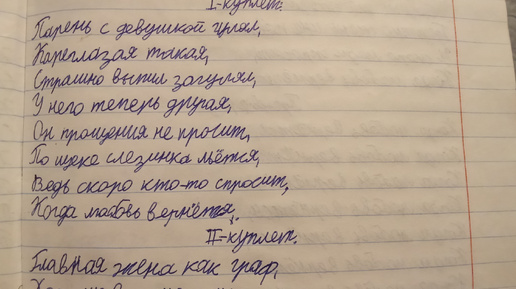 I-куплет.
Парень с девушкой гулял,
Кареглазая такая,
Страшно выпил загулял,
У него теперь другая,
Он прощения не просит,
По щеке слезинка льётся,
Ведь скоро кто-то спросит,
Когда любовь вернётся.
II-куплет.
Главная жена как граф,